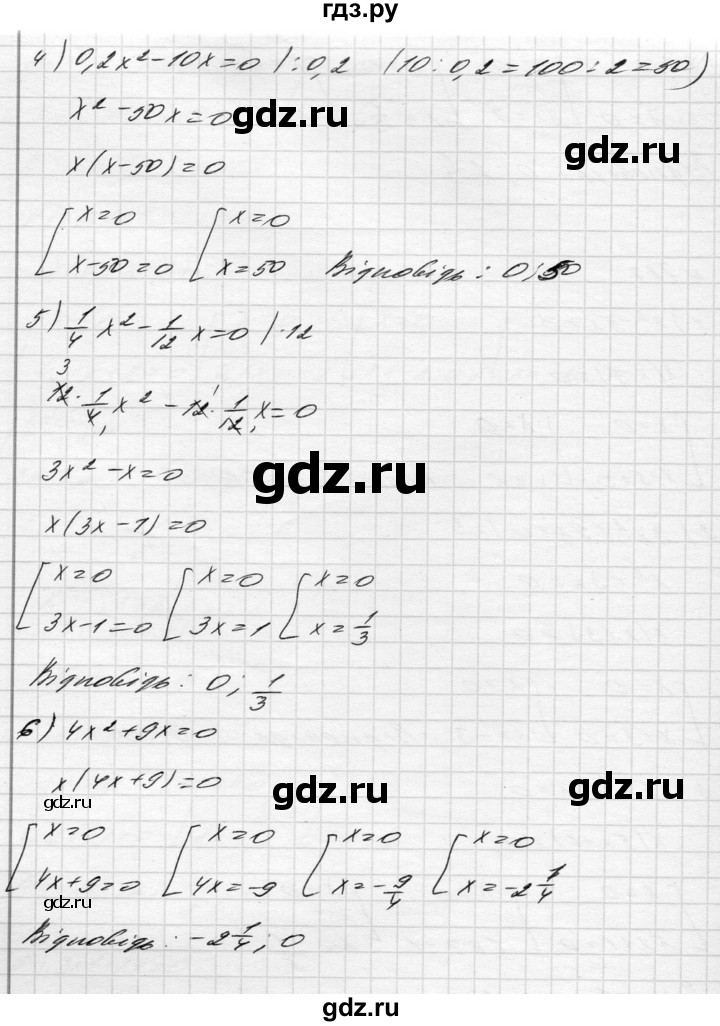 гдз.ру
4) 0,2x² - 10x = 0 | : 0,2 (10 : 0,2 = 100 : 2 = 50)
x² - 50x = 0
gdz.ru
gdz.ru
x(x - 50) = 0
[ x = 0 [ x = 0
x - 50 = 0 x = 50 Відповідь: 0; 50
5) 1/4 x² - 1/12 x = 0 | · 12
3 1
12 · 1/4 x² - 12 · 1/12 x = 0
1 1
3x² - x = 0
gdz.ru
x(3x - 1) = 0
[ x = 0 [ x = 0 [ x = 0
3x - 1 = 0 3x = 1 x = 1/3
Відповідь: 0; 1/3
6) 4x² + 9x = 0
x(4x + 9) = 0
gdz.ru
gdz.ru
gdz.ru
[ x = 0 [ x = 0 [ x = 0 [ x = 0
4x + 9 = 0 4x = -9 x = - 9/4 x = -2 1/4
gdz.ru
Відповідь: -2 1/4; 0
gdz.ru